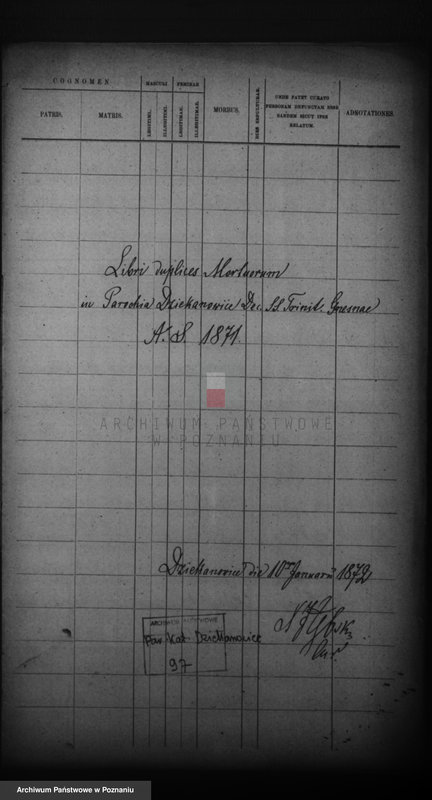 COGNOMEN
MASCULI
FEMINAE
PATRIS.
MATRIS.
LEGITIMI.
ILLEGITIMI.
LEGITIMAE.
ILLEGITIMAE.
MORBUS.
DIES SEPULTURAE.
UNDE PATET CURATO
PERSONAM DEFUNCTAM ESSE
EANDEM SICUT IPSE
RELATUM.
ADNOTATIONES.
Libri duplices Mortuorum
in Parochia Dziekanowice Dec. SS. Trinit. Gnesnae
A. S. 1871.
ARCHIWUM PAŃSTWOWE
W POZNANIU
Dziekanowice die 10 Januarii 1872
ARCHIWUM PAŃSTWOWE
Par. Kat. Dziekanowice
97
Archiwum Państwowe w Poznaniu